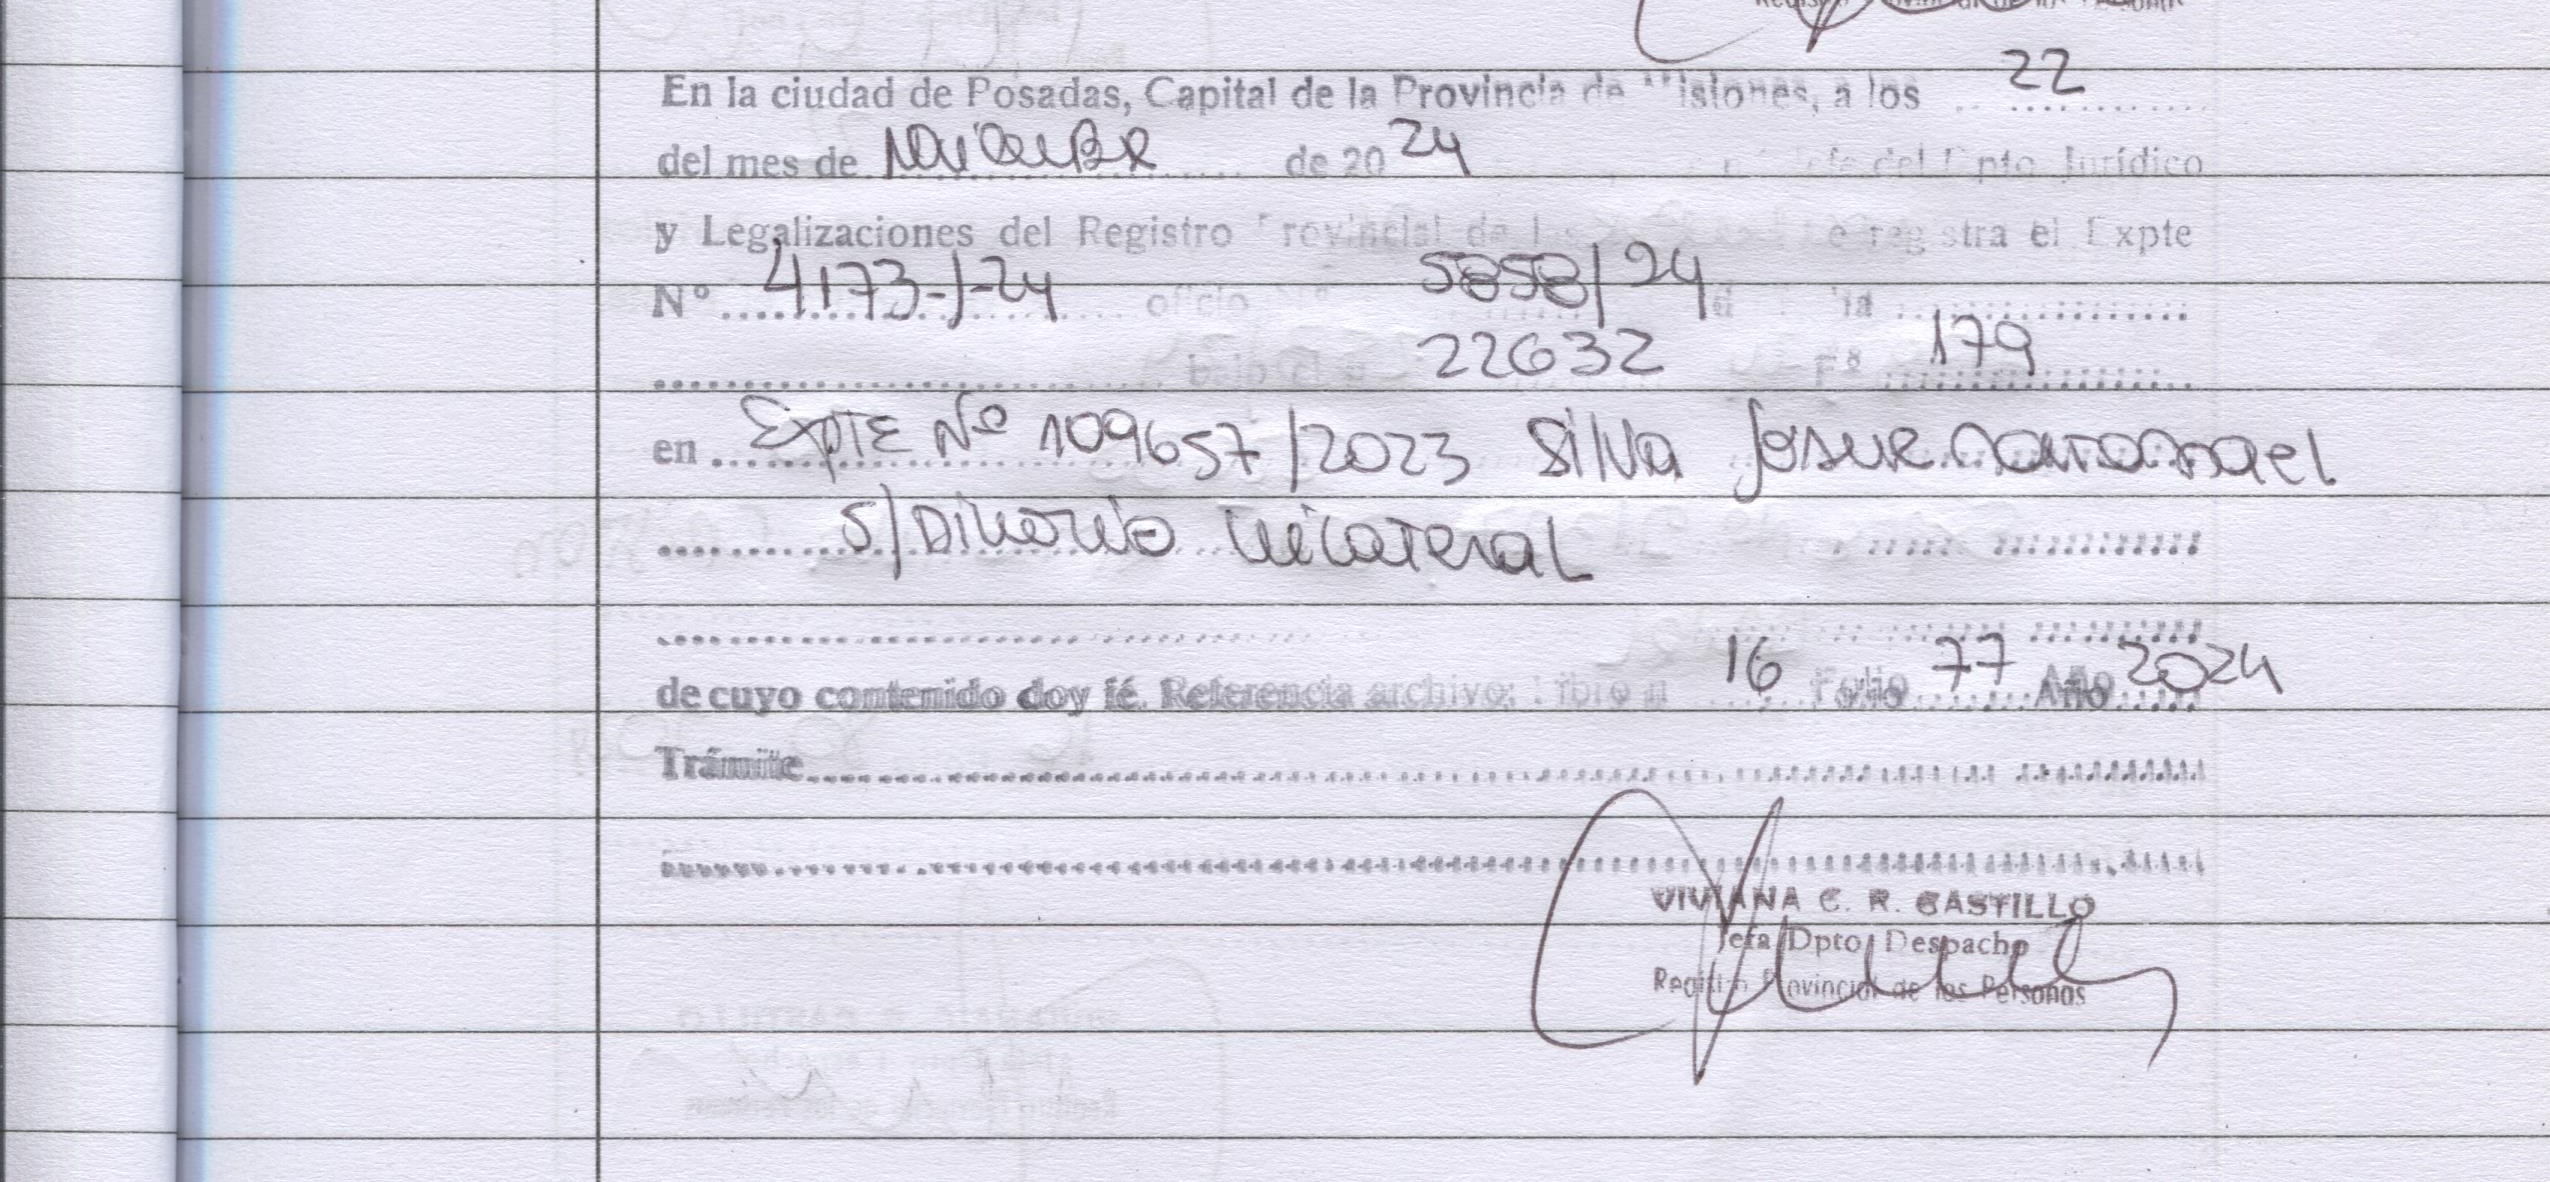 En la ciudad de Posadas, Capital de la Provincia de Misiones, a los 22
del mes de Noviembre de 2024 del Dpto Jurídico
y Legalizaciones del Registro Provincial de registra el Expte
Nº 4173-J-24 oficio 5858/24
22632 Fº 179
en Expte Nº 109657/2023 Silva Josue Natanael
S/Divorcio Unilateral
de cuyo contenido doy fé. Referencia archivo: Libro n 16 Folio 77 Año 2024
Trámite
VIVIANA C. R. CASTILLO
Jefa Dpto Despacho
Registro Provincial de las Personas